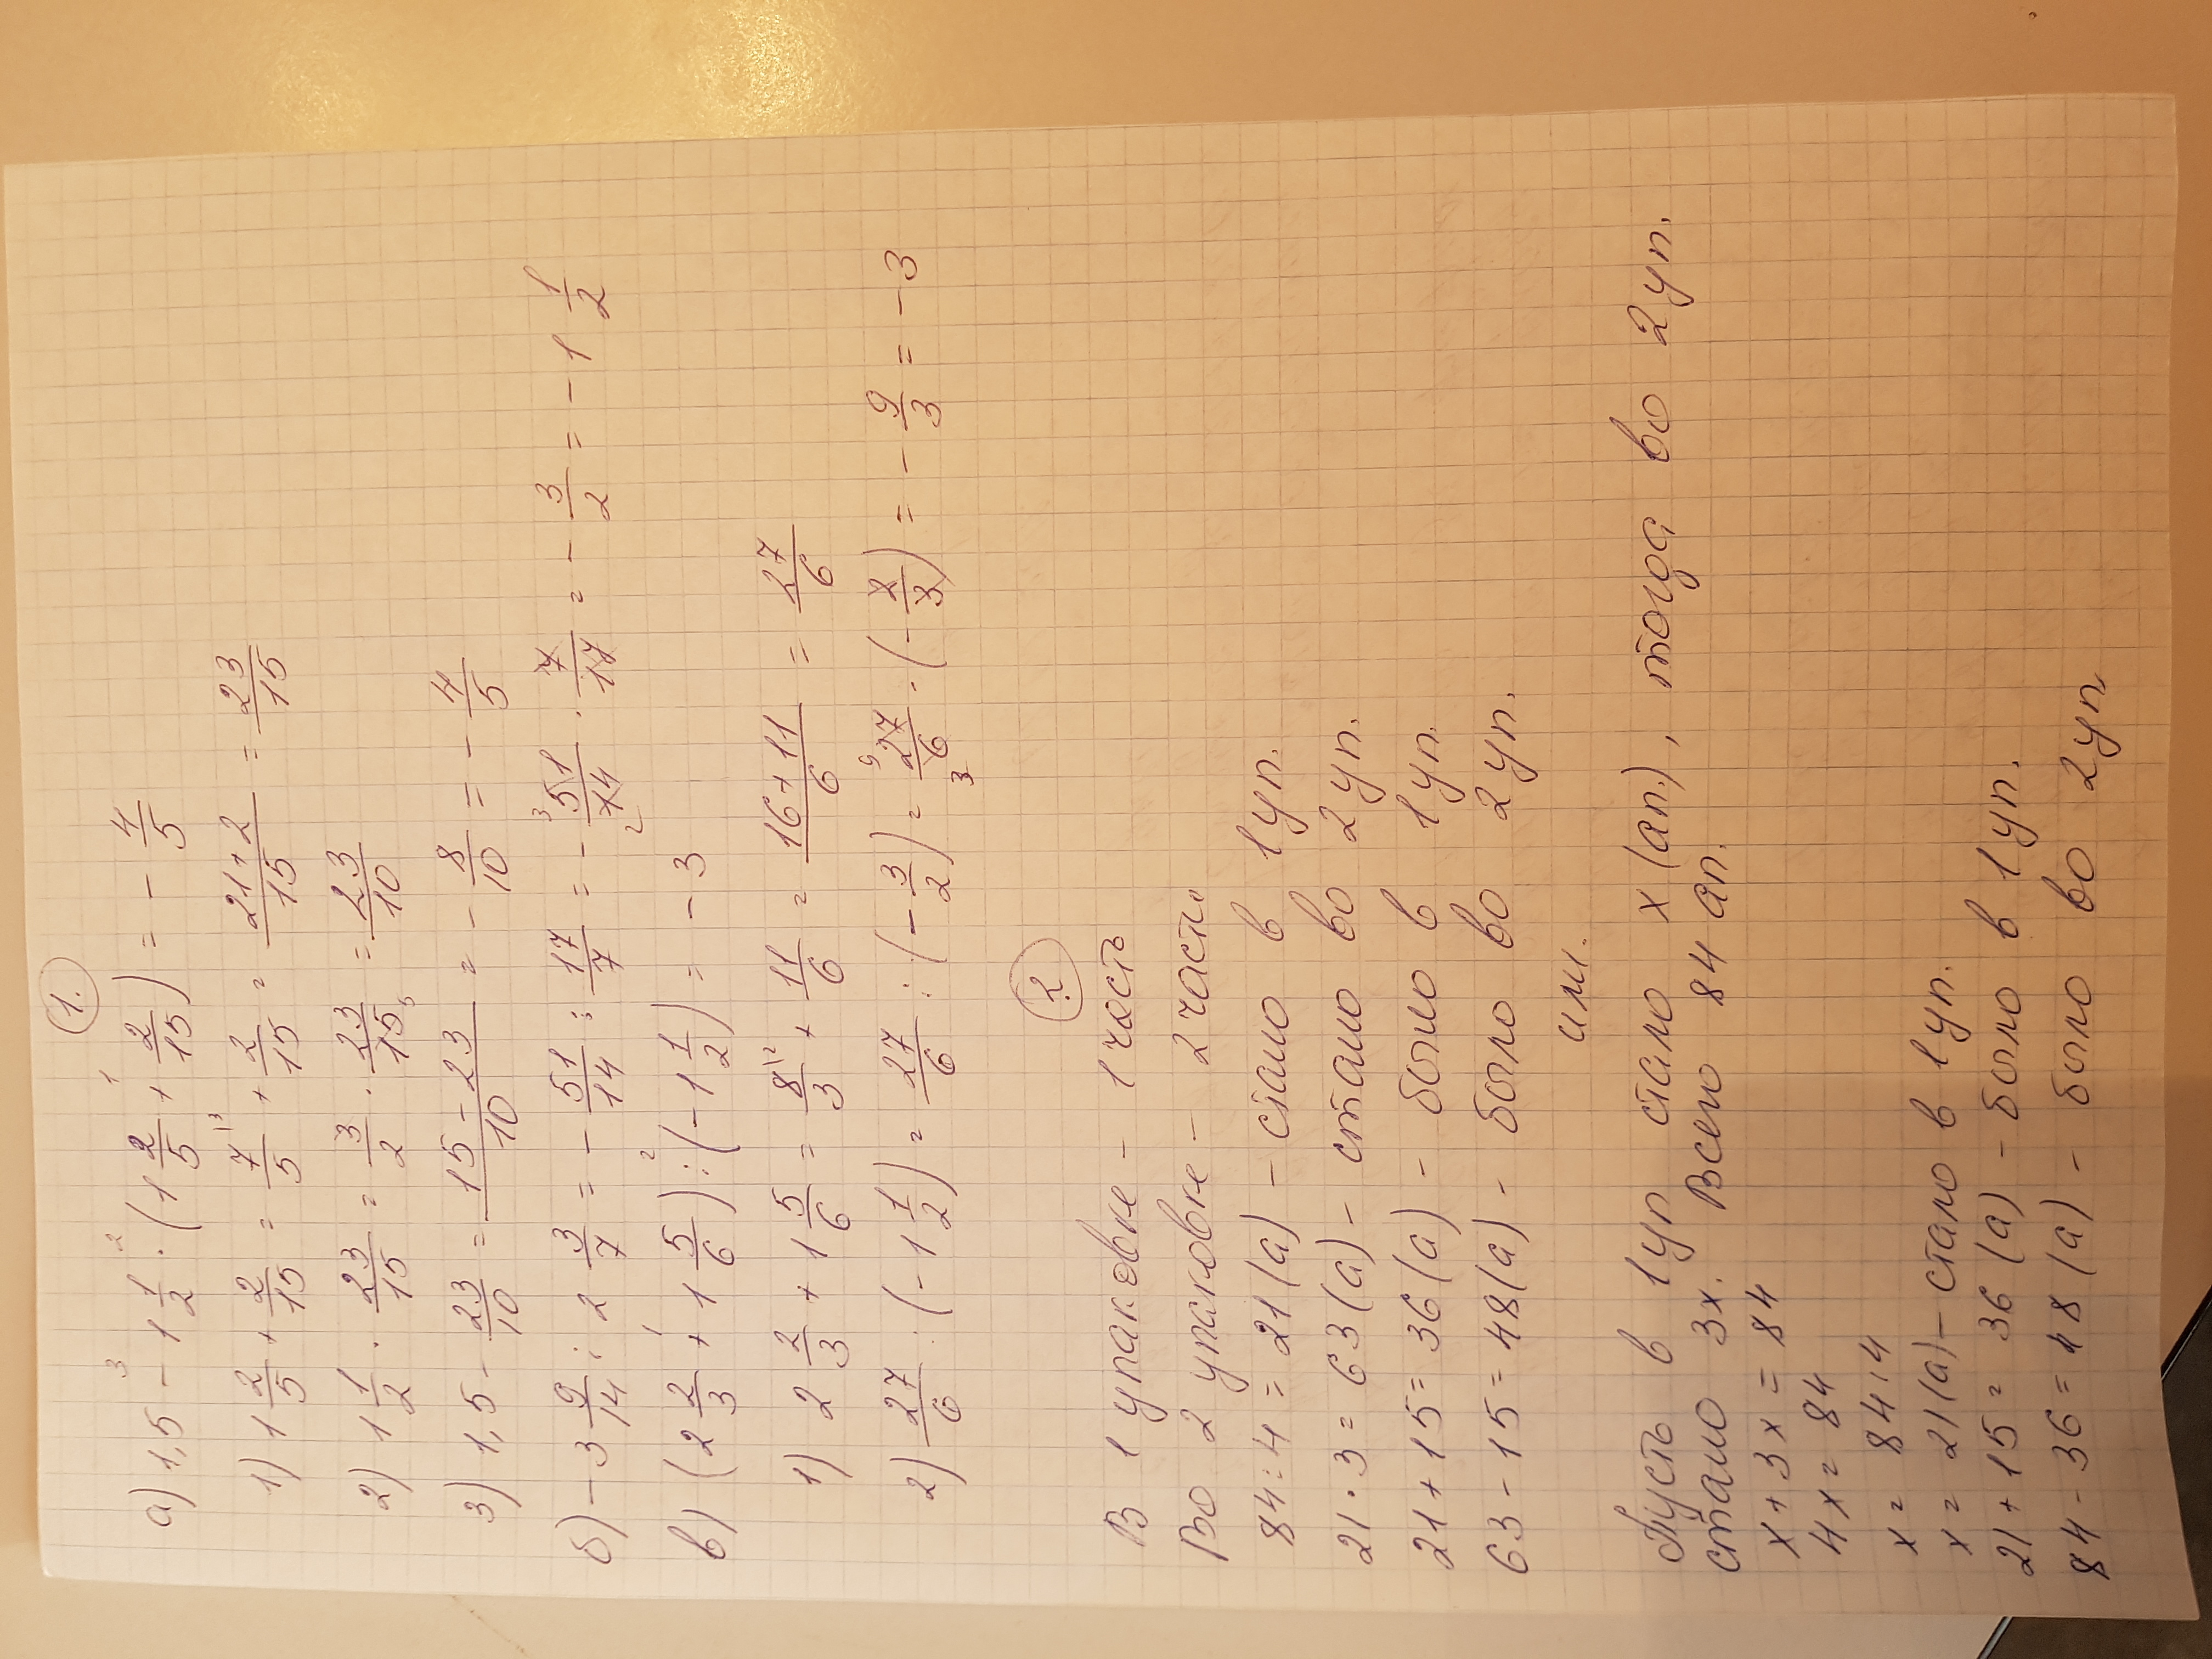 1.
а) 1,5 - 1 1/2 · (1 2/5 + 2/15) = - 4/5
1) 1 2/5 + 2/15 = 7/5 + 2/15 = 21+2/15 = 23/15
2) 1 1/2 · 23/15 = 3/2 · 23/15 = 23/10
3) 1,5 - 23/10 = 15-23/10 = - 8/10 = - 4/5
б) - 3 9/14 : 2 3/7 = - 51/14 : 17/7 = - 51/14 · 7/17 = - 3/2 = - 1 1/2
в) (2 2/3 + 1 5/6) : (- 1 1/2) = - 3
1) 2 2/3 + 1 5/6 = 8/3 + 11/6 = 16+11/6 = 27/6
2) 27/6 : (- 1 1/2) = 27/6 : (- 3/2) = 27/6 · (- 2/3) = - 9/3 = - 3
2.
В 1 упаковке - 1 часть
Во 2 упаковке - 2 часть
84 : 4 = 21 (а) - стало в 1 уп.
21 · 3 = 63 (а) - стало во 2 уп.
21 + 15 = 36 (а) - было в 1 уп.
63 - 15 = 48 (а) - было во 2 уп.
или.
Пусть в 1 уп стало х (ап.), тогда во 2 уп.
стало 3х. Всего 84 ап.
х + 3х = 84
4х = 84
х = 84 : 4
х = 21 (а) - стало в 1 уп.
21 + 15 = 36 (а) - было в 1 уп.
84 - 36 = 48 (а) - было во 2 уп